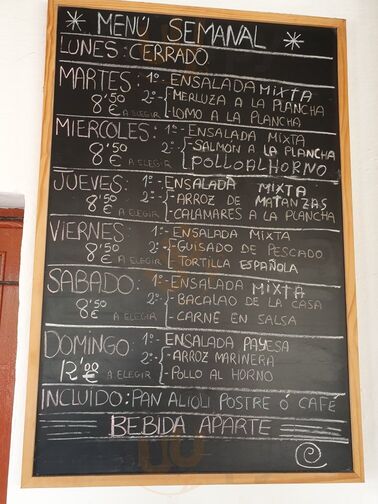 * MENÚ SEMANAL *
LUNES: CERRADO
MARTES: 1º- ENSALADA MIXTA
8'50 € A ELEGIR 2º- { - MERLUZA A LA PLANCHA
- LOMO A LA PLANCHA
MIERCOLES: 1º- ENSALADA MIXTA
8'50 € A ELEGIR 2º- { - SALMÓN A LA PLANCHA
- POLLO AL HORNO
JUEVES: 1º- ENSALADA MIXTA
8'50 € A ELEGIR 2º- { - ARROZ DE MATANZAS
- CALAMARES A LA PLANCHA
VIERNES: 1º- ENSALADA MIXTA
8'50 € A ELEGIR 2º- { - GUISADO DE PESCADO
- TORTILLA ESPAÑOLA
SABADO: 1º- ENSALADA MIXTA
8'50 € A ELEGIR 2º- { - BACALAO DE LA CASA
- CARNE EN SALSA
DOMINGO: 1º- ENSALADA PAYESA
12'00 € A ELEGIR 2º- { - ARROZ MARINERA
- POLLO AL HORNO
INCLUIDO: PAN ALIOLI POSTRE Ó CAFÉ
BEBIDA APARTE